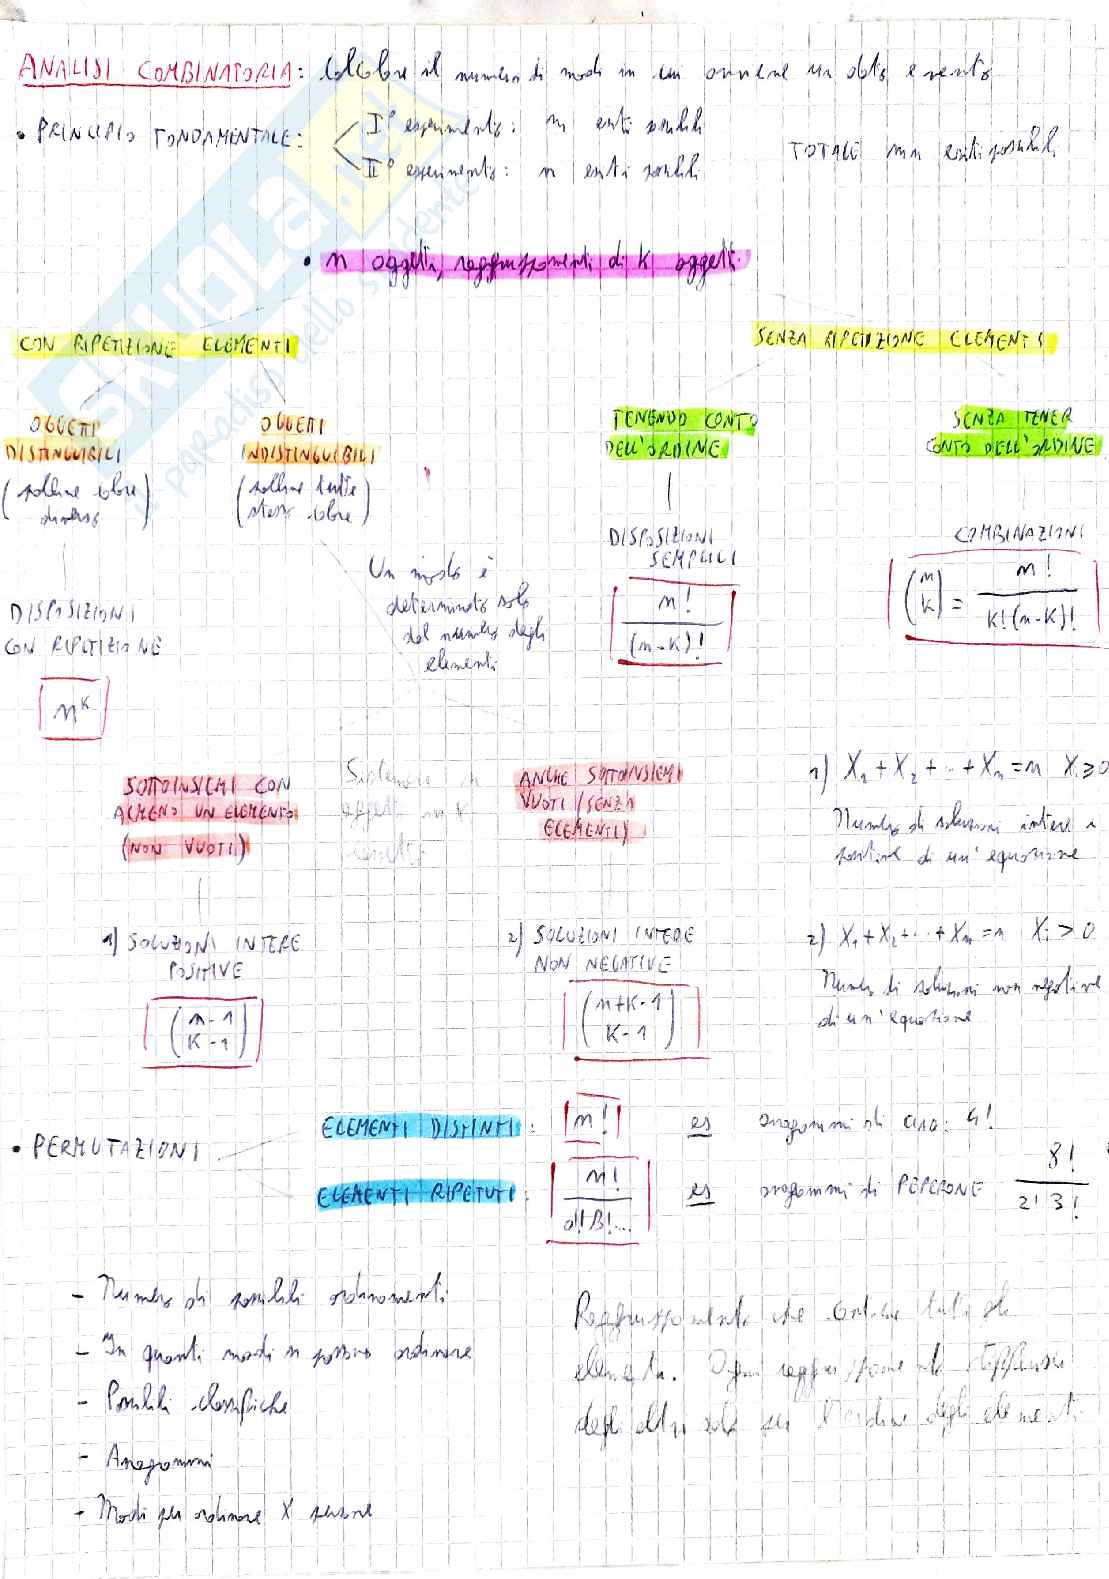 ANALISI COMBINATORIA: Calcolare il numero di modi in cui avviene un dato evento
• PRINCIPIO FONDAMENTALE:
I° esperimento: m esiti possibili
II° esperimento: n esiti possibili
TOTALE mn esiti possibili
• n oggetti, raggruppamenti di k oggetti
CON RIPETIZIONE ELEMENTI
SENZA RIPETIZIONE ELEMENTI
OGGETTI
DISTINGUIBILI
(palline colore
diverso)
OGGETTI
INDISTINGUIBILI
(palline tutte
stesso colore)
TENENDO CONTO
DELL'ORDINE
SENZA TENER
CONTO DELL'ORDINE
DISPOSIZIONI
CON RIPETIZIONE
n^k
Un modo è
determinato solo
dal numero degli
elementi
DISPOSIZIONI
SEMPLICI
n!
(n-k)!
COMBINAZIONI
(n k) = n! / k!(n-k)!
SOTTOINSIEMI CON
ALMENO UN ELEMENTO
(NON VUOTI)
Sistemare n
oggetti in k
ANCHE SOTTOINSIEMI
VUOTI (SENZA
ELEMENTI)
1) X1 + X2 + ... + Xn = n Xi ≥ 0
Numero di soluzioni intere e
positive di un'equazione
1) SOLUZIONI INTERE
POSITIVE
(n-1
k-1)
2) SOLUZIONI INTERE
NON NEGATIVE
(n+k-1
k-1)
2) X1 + X2 + ... + Xn = n Xi > 0
Numero di soluzioni non negative
di un'equazione
• PERMUTAZIONI
ELEMENTI DISTINTI: n! es anagrammi di ciao: 4!
ELEMENTI RIPETUTI: n! / α!β!... es anagrammi di PEPERONE 8! / 2! 3!
- Numero di possibili ordinamenti
- In quanti modi si possono ordinare
- Possibili classifiche
- Anagrammi
- Modi per ordinare X persone
Raggruppamento che contiene tutti gli
elementi. Ogni raggruppamento differisce
dagli altri solo per l'ordine degli elementi
SKUOLA.net
il paradiso dello studente